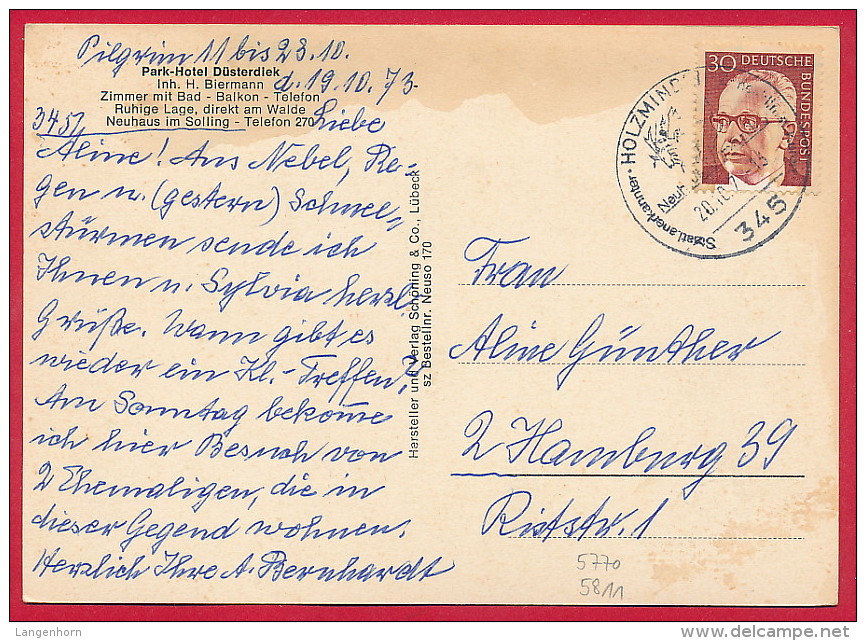 Pilgrim 11 bis 23.10.
Park-Hotel Düsterdiek
Inh. H. Biermann
d. 19.10.73.
Zimmer mit Bad - Balkon - Telefon
Ruhige Lage, direkt am Walde
3451 Neuhaus im Solling - Telefon 270
Liebe
Aline! Aus Nebel, Re-
gen u. (gestern) Schnee=
stürmen sende ich
Ihnen u. Sylvia herzl.
Grüße. Wann gibt es
wieder ein Kl.-Treffen?
Am Sonntag bekome
ich hier Besuch von
2 Ehemaligen, die in
dieser Gegend wohnen.
Herzlich Ihre A. Bernhardt
Hersteller und Verlag Schöning & Co., Lübeck
sz Bestellnr. Neuso 170
30 DEUTSCHE
BUNDESPOST
HOLZMINDEN
Neuhaus
Staatl. anerkannter
20.10.7
345
Frau
Aline Günther
2 Hamburg 39
Riststr. 1
5770
5811
Langenhorn
www.delcampe.net